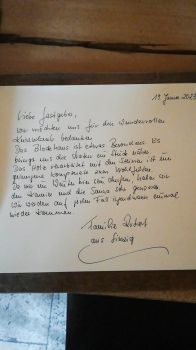 13. Januar 2023
Liebe Gastgeber,
wir möchten uns für den wundervollen
Kurzurlaub bedanken.
Das Blockhaus ist etwas Besonderes. Es
bringt uns die Natur ein Stück näher.
Das Holz verarbeitet mit den Steinen ist eine
gelungene Komposition zum Wohlfühlen.
Da wir im Winter hier sein durften, haben wir
den Kamin und die Sauna sehr genossen.
Wir werden auf jeden Fall irgendwann einmal
wieder kommen.
Familie
aus